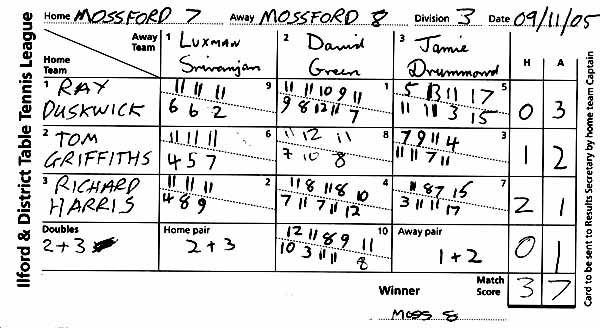 Ilford & District Table Tennis League
Home MOSSFORD 7 Away MOSSFORD 8 Division 3 Date 09/11/05
Away Team 1 LUXMAN Srivanjan 2 David Green 3 Jamie Drummond H A
Home Team
1 RAY DUSKWICK 9 11 11 11 1 11 11 10 9 11 5 5 13 11 17 0 3
6 6 2 9 8 12 11 7 11 11 3 15
2 TOM GRIFFITHS 6 11 11 11 8 11 12 11 3 7 9 11 4 1 2
4 5 7 7 10 8 11 11 7 11
3 RICHARD HARRIS 2 11 11 11 4 11 8 11 8 10 7 11 8 7 15 2 1
4 8 9 7 11 7 11 12 3 11 11 17
Doubles 2+3 Home pair 2+3 10 12 11 8 9 11 Away pair 1+2 0 1
10 3 11 11 8
Winner Moss 8 Match Score 3 7
Card to be sent to Results Secretary by home team Captain